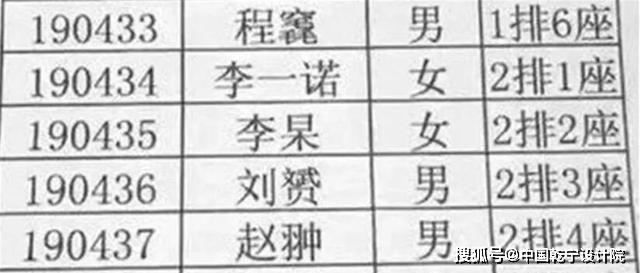 190433 程 男 1排6座
190434 李一诺 女 2排1座
190435 李杲 女 2排2座
190436 刘赟 男 2排3座
190437 赵翀 男 2排4座
搜狐号@中国乾宁设计院